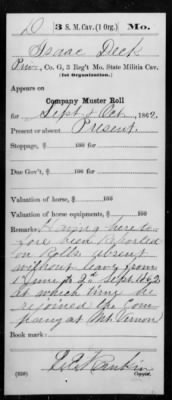 D | 3 S. M. Cav. (1 Org.) | Mo.
Isaac Deck
Priv., Co. G, 3 Reg't Mo. State Militia Cav.
(1st Organization.)
Appears on
Company Muster Roll
for Sept & Oct, 1862.
Present or absent Present
Stoppage, $ 100 for
Due Gov't, $ 100 for
Valuation of horse, $ 100
Valuation of horse equipments, $ 100
Remarks: Having hereto-
fore been reported
on Rolls absent
without leave from
1 June to 2d Sept 1862
at which time he
rejoined the Com-
pany at Mt Vernon
Book mark:
(358)
Copyist.